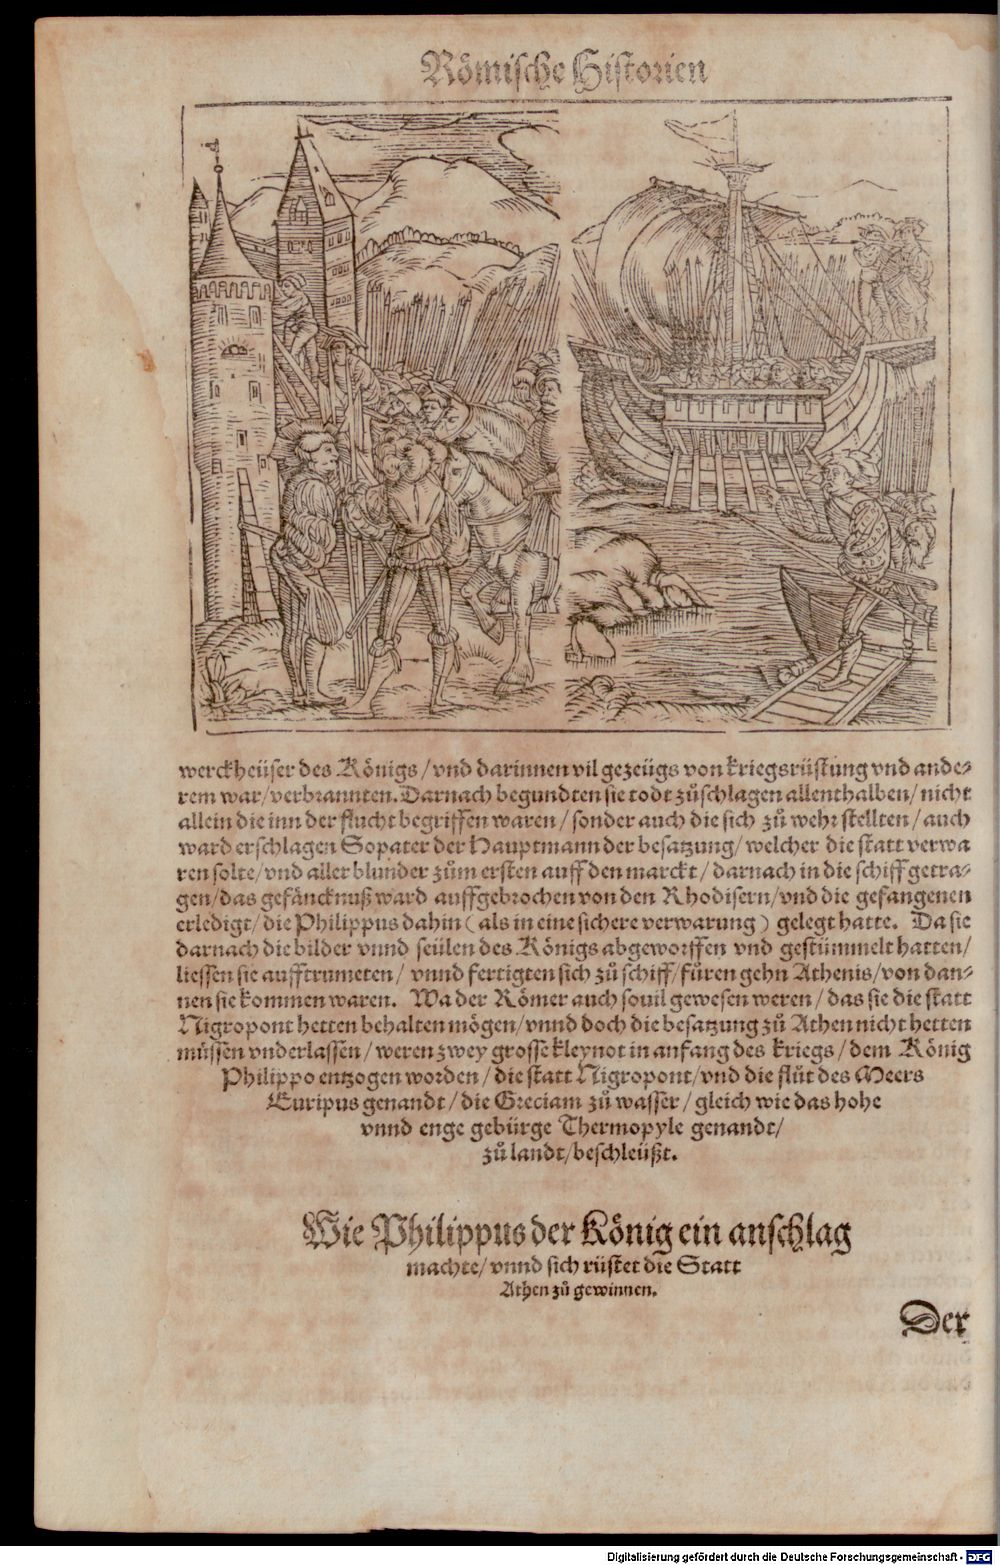 Römische Historien
werckheüser des Königs / vnd darinnen vil gezeügs von kriegsrüstung vnd ande⸗
rem war / verbrannten. Darnach begundten sie todt zůschlagen allenthalben / nicht
allein die inn der flucht begriffen waren / sonder auch die sich zů wehr stellten / auch
ward erschlagen Sopater der Hauptmann der besatzung / welcher die statt verwa
ren solte / vnd aller blunder zům ersten auff den marckt / darnach in die schiff getra⸗
gen / das gefäncknuß ward auffgebrochen von den Rhodisern / vnd die gefangenen
erledigt / die Philippus dahin ( als in eine sichere verwarung ) gelegt hatte. Da sie
darnach die bilder vnnd seülen des Königs abgeworffen vnd gestümmelt hatten /
liessen sie aufftrumeten / vnnd fertigten sich zů schiff / fůren gehn Athenis / von dan⸗
nen sie kommen waren. Wa der Römer auch souil gewesen weren / das sie die statt
Nigropont hetten behalten mögen / vnnd doch die besatzung zů Athen nicht hetten
müssen vnderlassen / weren zwey grosse kleynot in anfang des kriegs / dem König
Philippo entzogen worden / die statt Nigropont / vnd die flůt des Meers
Euripus genandt / die Greciam zů wasser / gleich wie das hohe
vnnd enge gebürge Thermopyle genandt /
zů landt / beschleüßt.
Wie Philippus der König ein anschlag
machte / vnnd sich rüstet die Statt
Athen zů gewinnen.
Der
Digitalisierung gefördert durch die Deutsche Forschungsgemeinschaft - DFG